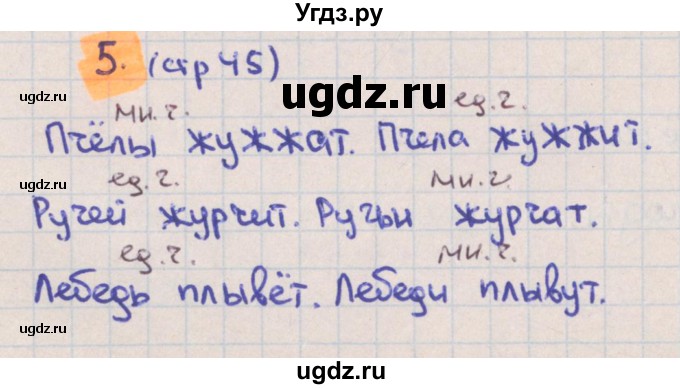 Угдз.ру
5. (стр 45)
ugdz.ru
ugdz.ru
ugdz.ru
мн.ч. ед.ч.
Пчёлы жужжат. Пчела жужжит.
ед.ч. мн.ч.
Ручей журчит. Ручьи журчат.
ugdz.ru
ugdz.ru
ед.ч. мн.ч.
Лебедь плывёт. Лебеди плывут.
ugdz.ru
ugdz.ru
ugdz.ru